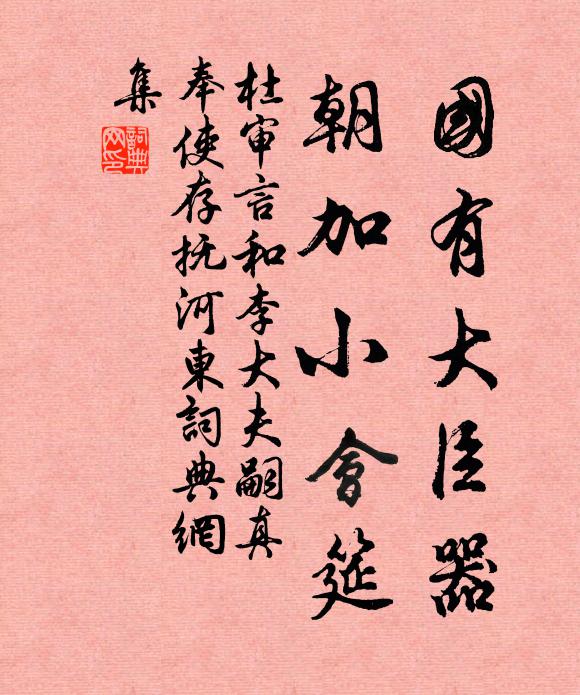 國有大臣器
朝加小會筵
杜审言和李大夫嗣真
奉使存抚河東詞典網
集
詞典
网印